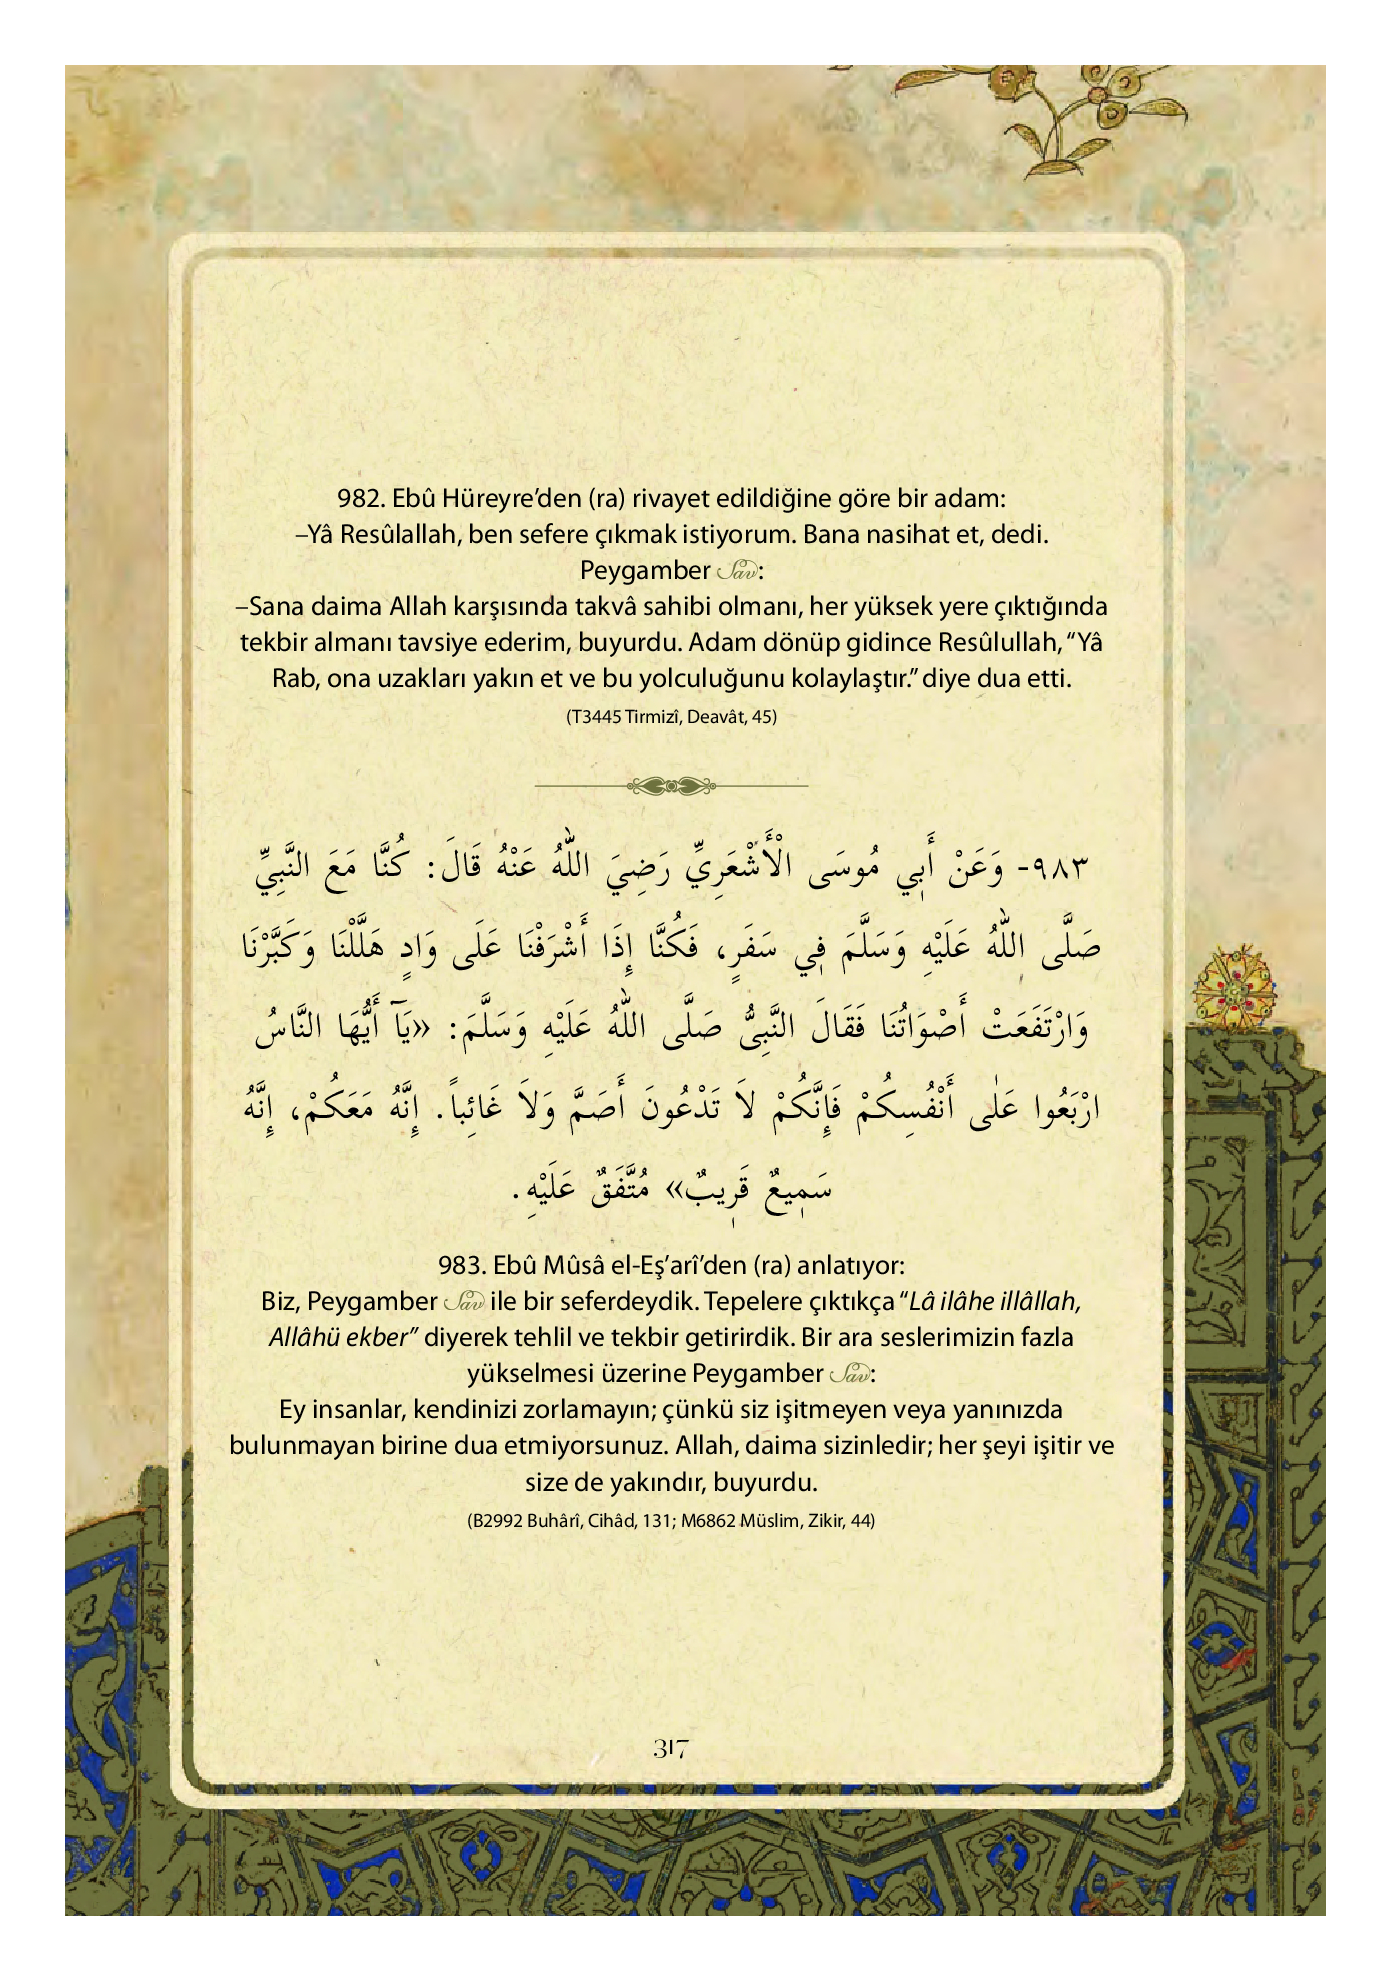 982. Ebû Hüreyre’den (ra) rivayet edildiğine göre bir adam:
–Yâ Resûlallah, ben sefere çıkmak istiyorum. Bana nasihat et, dedi.
Peygamber Sav:
–Sana daima Allah karşısında takvâ sahibi olmanı, her yüksek yere çıktığında
tekbir almanı tavsiye ederim, buyurdu. Adam dönüp gidince Resûlullah, “Yâ
Rab, ona uzakları yakın et ve bu yolculuğunu kolaylaştır.” diye dua etti.
(T3445 Tirmizî, Deavât, 45)
٩٨٣- وَعَنْ أَبِي مُوسَى الْأَشْعَرِيِّ رَضِيَ اللّٰهُ عَنْهُ قَالَ: كُنَّا مَعَ النَّبِيِّ
صَلَّى اللّٰهُ عَلَيْهِ وَسَلَّمَ فِي سَفَرٍ، فَكُنَّا إِذَا أَشْرَفْنَا عَلَى وَادٍ هَلَّلْنَا وَكَبَّرْنَا
وَارْتَفَعَتْ أَصْوَاتُنَا فَقَالَ النَّبِىُّ صَلَّى اللّٰهُ عَلَيْهِ وَسَلَّمَ: «يَآ أَيُّهَا النَّاسُ
ارْبَعُوا عَلٰى أَنْفُسِكُمْ فَإِنَّكُمْ لَا تَدْعُونَ أَصَمَّ وَلَا غَائِباً. إِنَّهُ مَعَكُمْ، إِنَّهُ
سَمِيعٌ قَرِيبٌ» مُتَّفَقٌ عَلَيْهِ.
983. Ebû Mûsâ el-Eş’arî’den (ra) anlatıyor:
Biz, Peygamber Sav ile bir seferdeydik. Tepelere çıktıkça “Lâ ilâhe illâllah,
Allâhü ekber” diyerek tehlil ve tekbir getirirdik. Bir ara seslerimizin fazla
yükselmesi üzerine Peygamber Sav:
Ey insanlar, kendinizi zorlamayın; çünkü siz işitmeyen veya yanınızda
bulunmayan birine dua etmiyorsunuz. Allah, daima sizinledir; her şeyi işitir ve
size de yakındır, buyurdu.
(B2992 Buhârî, Cihâd, 131; M6862 Müslim, Zikir, 44)
317